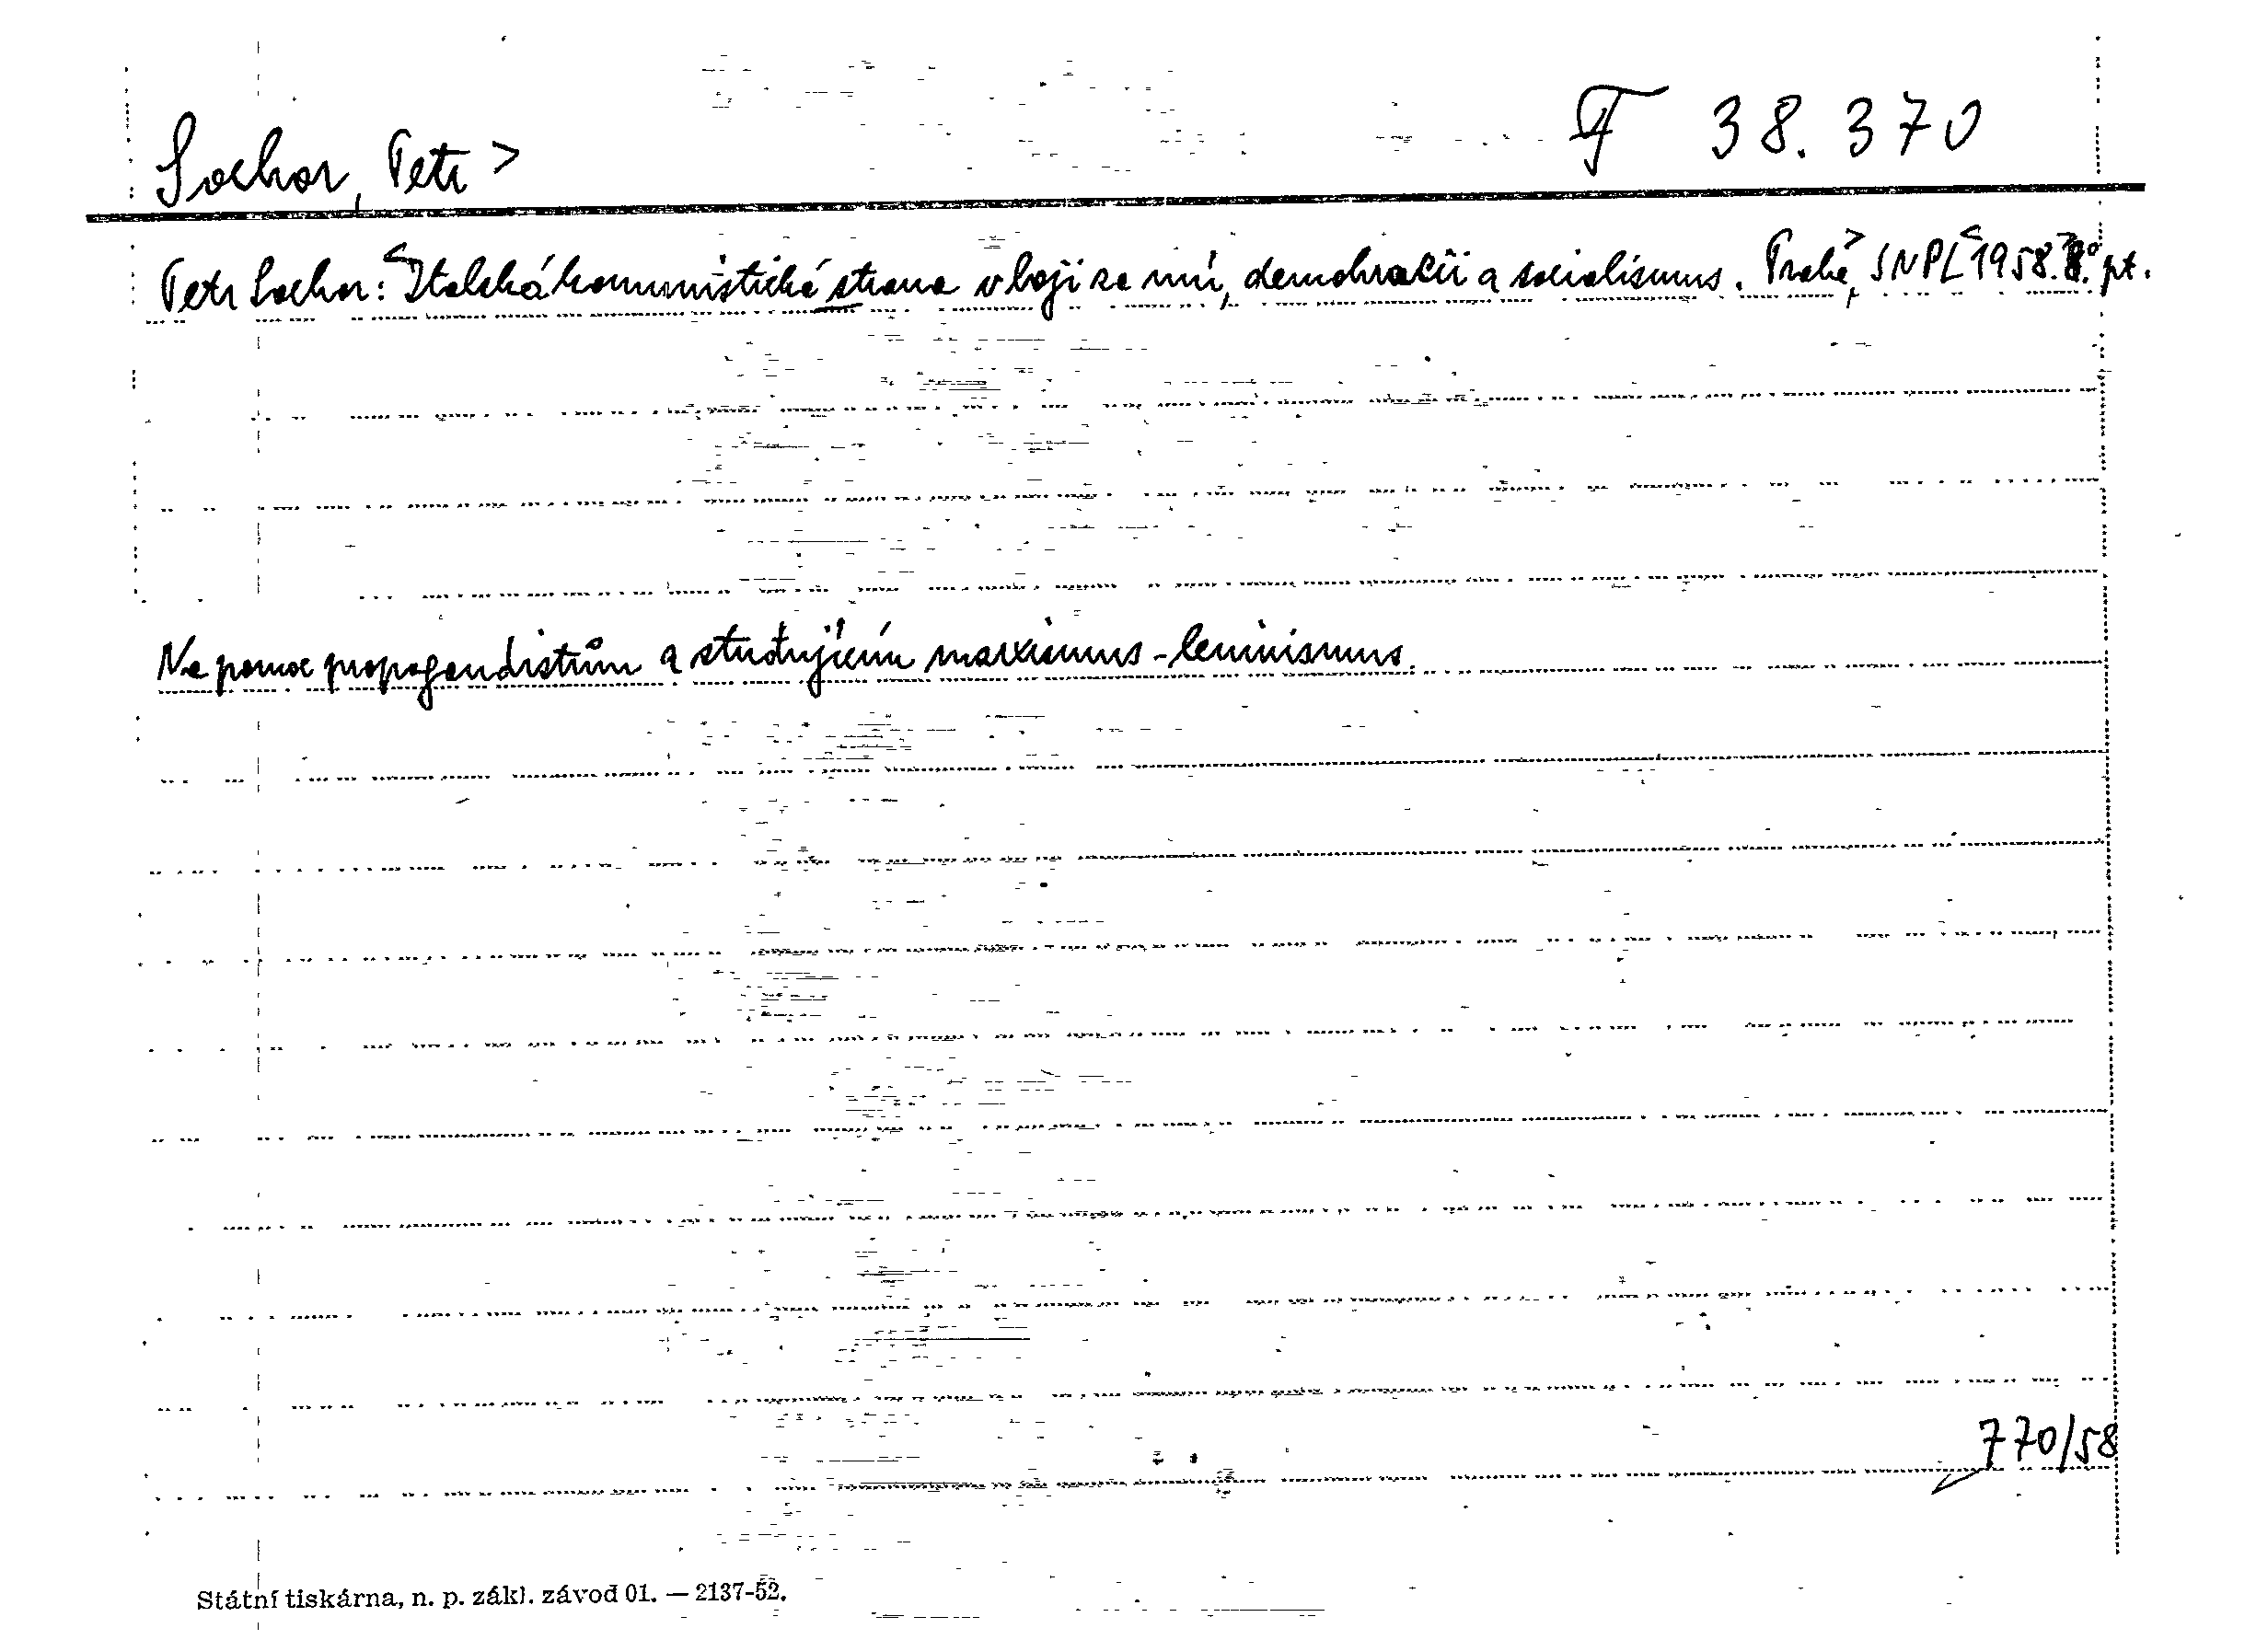 Sochor, Petr > F 38.370
Petr Sochor: <Italská komunistická strana v boji za mír, demokracii a socialismus. Praha>, SNPL <1958.> 8° pt.
Na pomoc propagandistům a studujícím marxismus-leninismus.
770/58
Státní tiskárna, n. p. zákl. závod 01. — 2137-52.